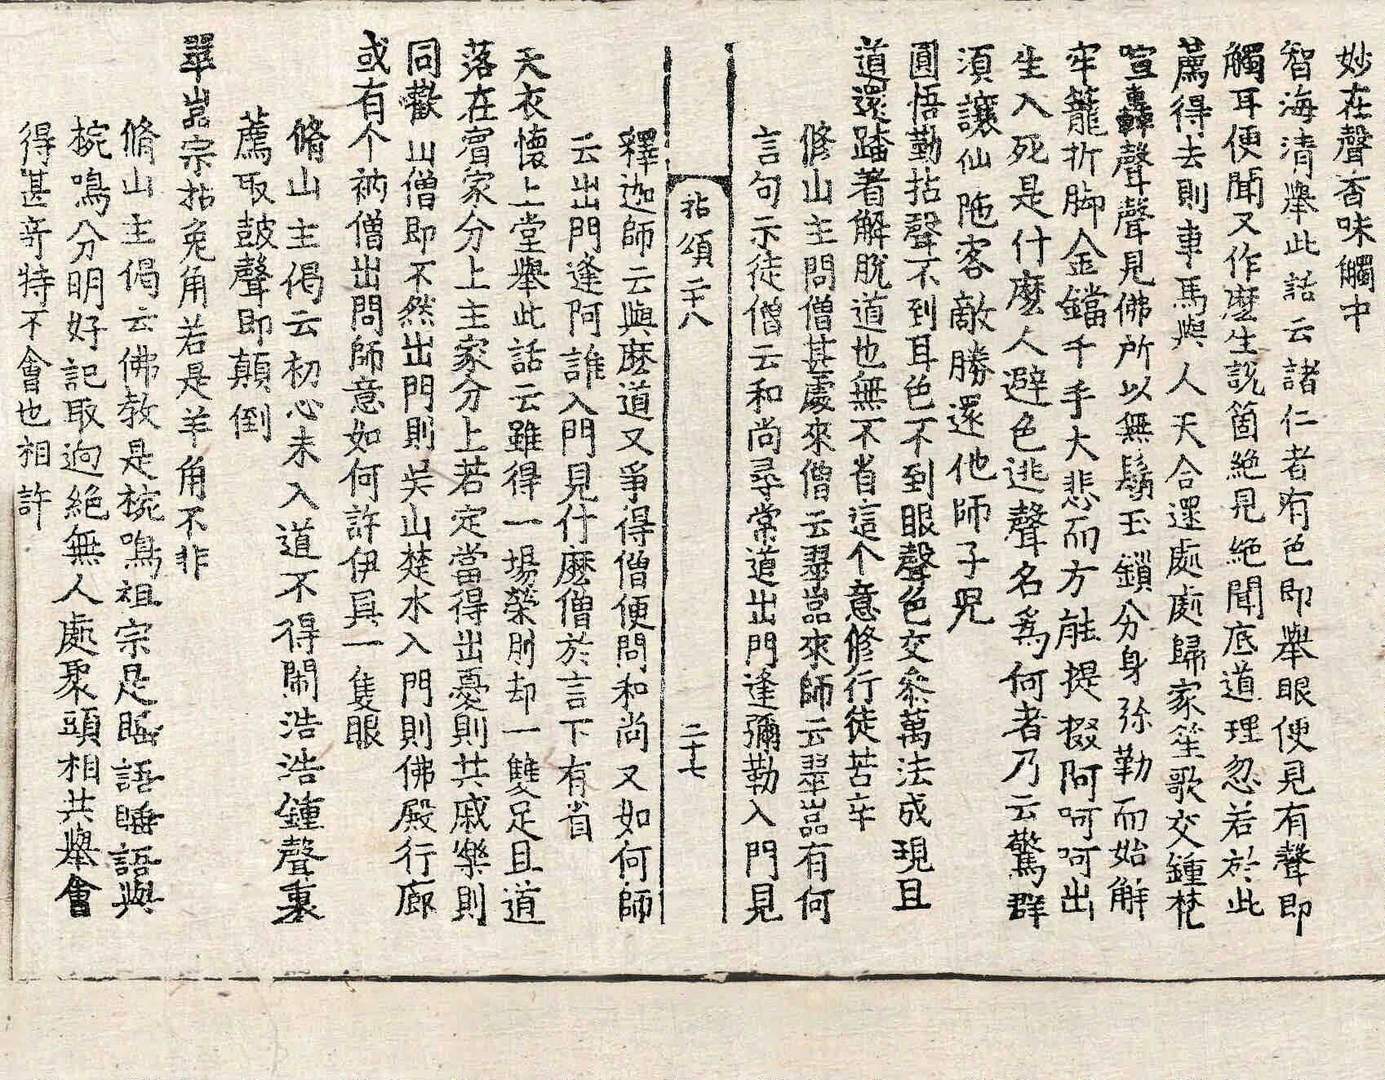 妙在聲香味觸中
智海清擧此話云諸仁者有色即擧眼便見有聲即
觸耳便聞又作麽生說箇絶見絶聞底道理忽若於此
薦得去則車馬與人天合還處處歸家笙歌交鍾梵
喧轟聲聲見佛所以無鬚玉鎖分身弥勒而始解
牢籠折脚金鐺千手大悲而方能提掇阿呵呵出
生入死是什麽人避色逃聲名爲何者乃云驚群
須讓仙陁客敵勝還他師子児
圓悟勤拈聲不到耳色不到眼聲色交叅萬法成現且
道還踏著解脫道也無不省這个意修行徒苦辛
修山主問僧甚處來僧云翠嵓來師云翠嵓有何
言句示徒僧云和尚尋常道出門逢彌勒入門見
拈頌二十八
二十七
釋迦師云與麽道又爭得僧便問和尚又如何師
云出門逢阿誰入門見什麽僧於言下有省
天衣懷上堂擧此話云雖得一場榮刖却一雙足且道
落在賓家分上主家分上若定當得出憂則共戚樂則
同歡山僧即不然出門則吴山楚水入門則佛殿行廊
或有个衲僧出問師意如何許伊具一隻眼
脩山主偈云初心未入道不得閙浩浩鍾聲裏
薦取鼓聲即顚倒
翠嵓宗拈兔角若是羊角不非
脩山主偈云佛教是椀鳴祖宗是瞌語睡語與
椀鳴分明好記取逈絶無人處聚頭相共擧會
得甚竒特不會也相許